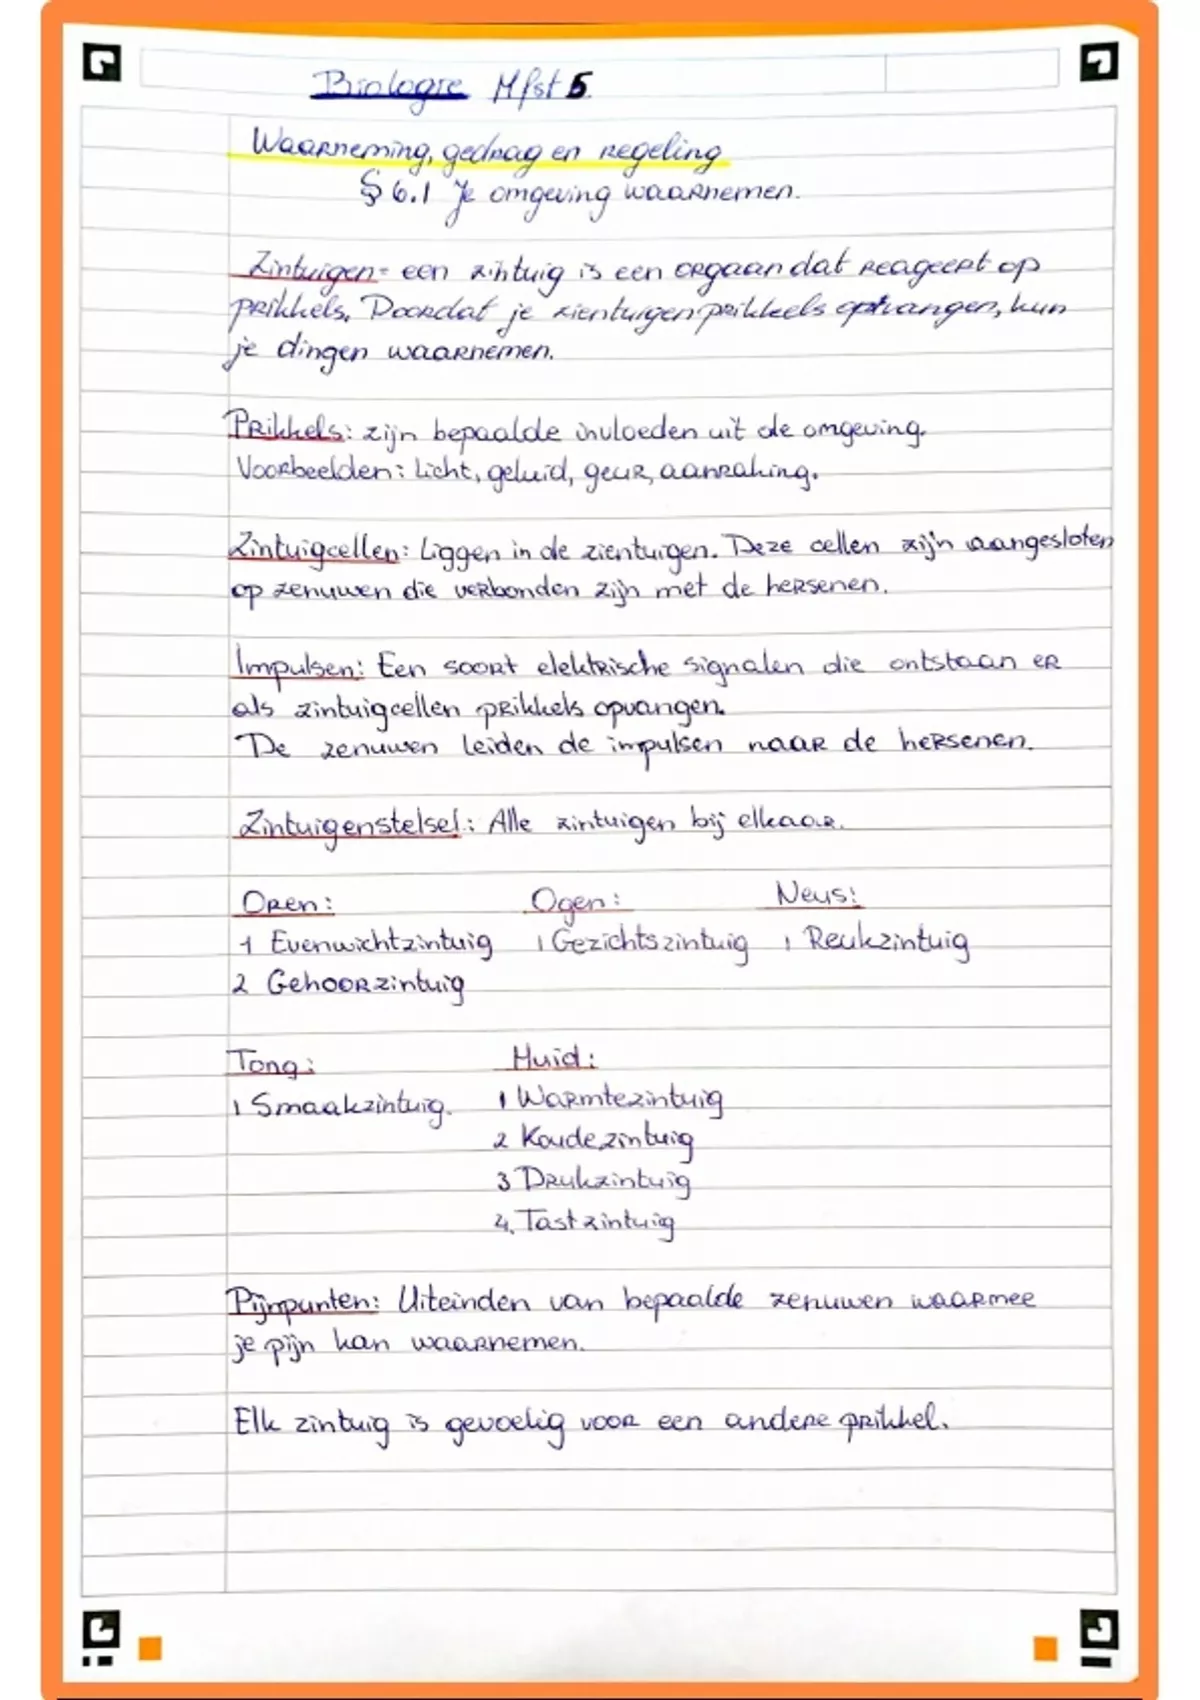 Biologie Hfst 5
Waarneming, gedrag en regeling
§ 6.1 Je omgeving waarnemen.
Zintuigen= een zintuig is een orgaan dat reageert op
prikkels. Doordat je zientuigen prikkels optvangen, kun
je dingen waarnemen.
Prikkels: zijn bepaalde invloeden uit de omgeving.
Voorbeelden: Licht, geluid, geur, aanraking.
Zintuigcellen: Liggen in de zientuigen. Deze cellen zijn aangesloten
op zenuwen die verbonden zijn met de hersenen.
Impulsen: Een soort elektrische signalen die ontstaan er
als zintuigcellen prikkels opvangen.
De zenuwen leiden de impulsen naar de hersenen.
Zintuigenstelsel: Alle zintuigen bij elkaar.
Oren: Ogen: Neus:
1 Evenwichtzintuig 1 Gezichtszintuig 1 Reukzintuig
2 Gehoorzintuig
Tong: Huid:
1 Smaakzintuig. 1 Warmtezintuig
2 Koudezintuig
3 Drukzintuig
4. Tastzintuig
Pijnpunten: Uiteinden van bepaalde zenuwen waarmee
je pijn kan waarnemen.
Elk zintuig is gevoelig voor een andere prikkel.